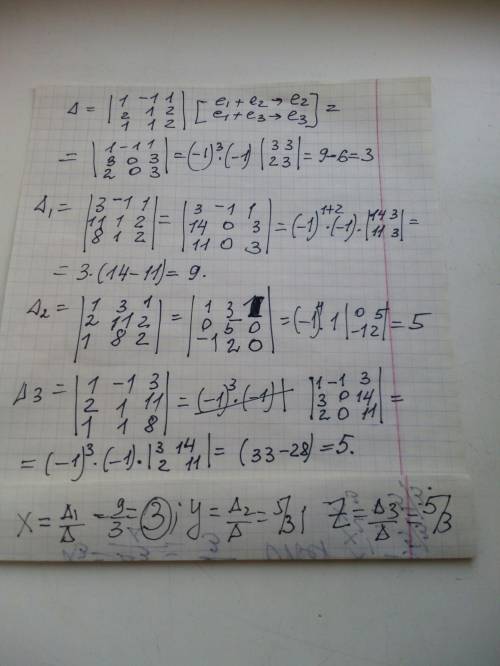 Δ = |1 -1 1; 2 1 2; 1 1 2| [e₁+e₂→e₂; e₁+e₃→e₃] =
= |1 -1 1; 3 0 3; 2 0 3| = (-1)³·(-1) |3 3; 2 3| = 9-6=3
Δ₁ = |3 -1 1; 11 1 2; 8 1 2| = |3 -1 1; 14 0 3; 11 0 3| = (-1)¹⁺²·(-1)·|14 3; 11 3| =
= 3·(14-11)= 9.
Δ₂ = |1 3 1; 2 11 2; 1 8 2| = |1 3 1; 0 5 0; -1 2 0| = (-1)⁴·1 |0 5; -1 2| = 5
Δ3 = |1 -1 3; 2 1 11; 1 1 8| = (-1)³·(-1) |1 -1 3; 3 0 14; 2 0 11| =
= (-1)³·(-1)·|3 14; 2 11| = (33-28)=5.
X = Δ₁/Δ = 9/3 = 3; y = Δ₂/Δ = 5/3; Z = Δ3/Δ = 5/3